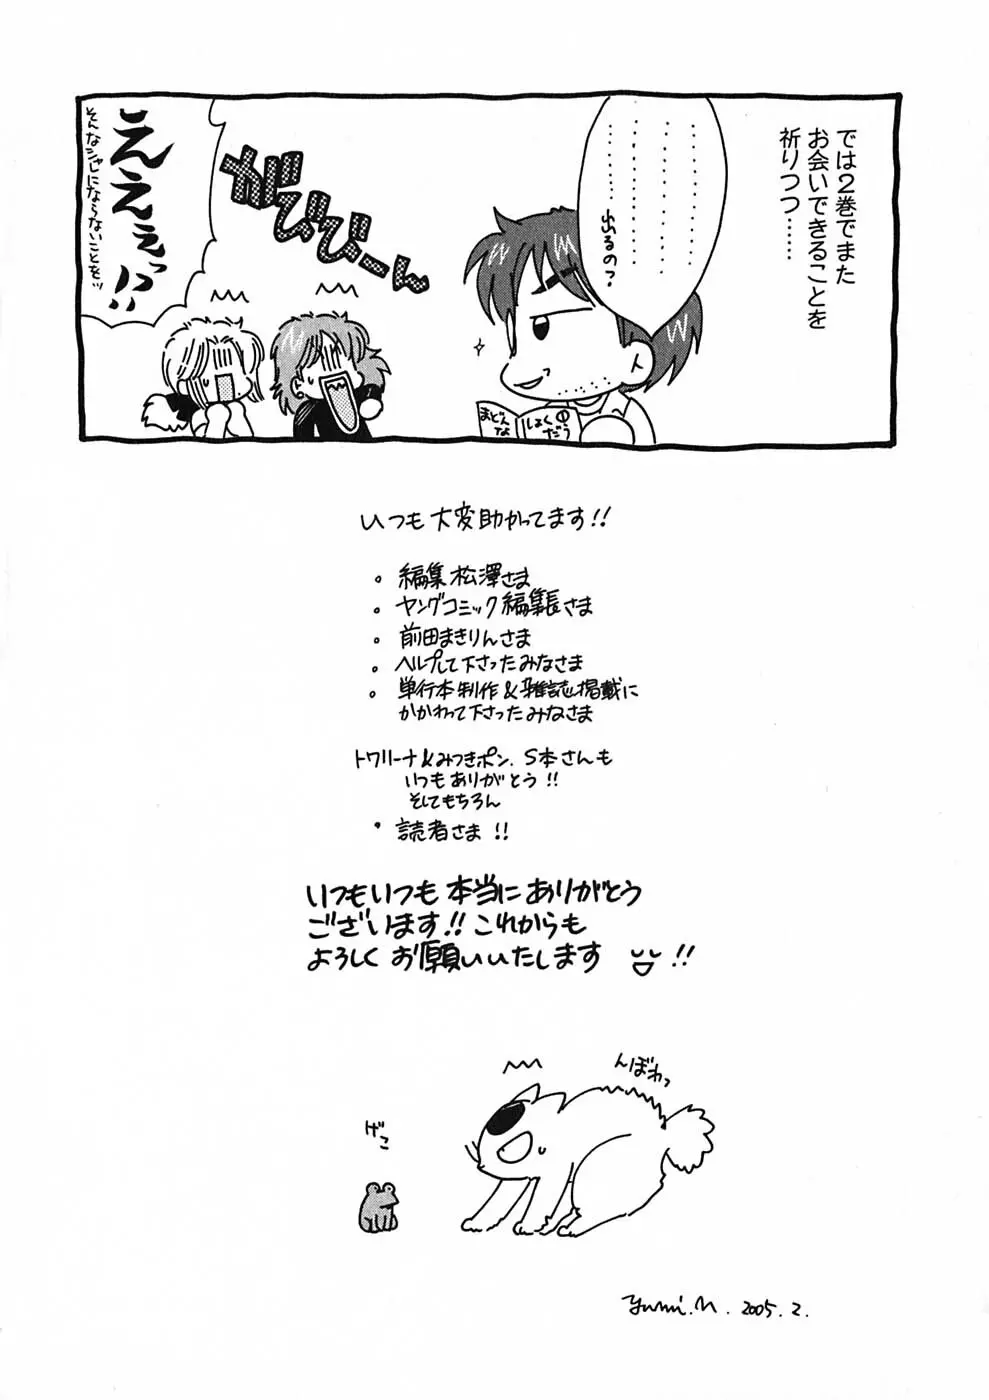 では2巻でまた
お会いできることを
祈りつつ……
……………
……………
……………
出るの？
まどえな
しょくΦ
だう
がびびーん
ええぇっ!!
そんなシャレにならないことをッ
いつも大変助かってます!!
。編集松澤さま
。ヤングコミック編集長さま
。前田まきりんさま
。ヘルプして下さったみなさま
。単行本制作＆雑誌掲載に
かかわって下さったみなさま
トワリーナ＆みつきポン、S本さんも
いつもありがとう!!
そしてもちろん
・読者さま!!
いつもいつも本当にありがとう
ございます!!これからも
よろしくお願いいたします!!
んぼわっ
げこ
Yumi.N. 2005.2.